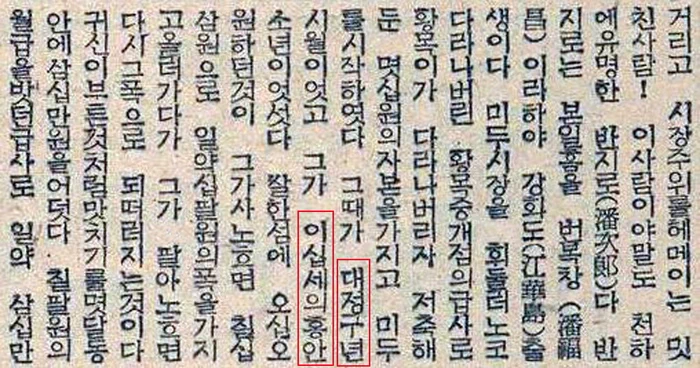 거리고 시장주위를헤메이는 밋
친사람! 이사람이야말로 천하
에유명한 반지로(潘次郞)다 반
지로는 본일홈을 반복창 (潘福
昌)이라하야 강화도(江華島)출
생이다 미두시장을 휘둘너노코
다라나버린 황목중개점의급사로
황목이가 다라나버리자 저축해
둔 몃십원의자본을가지고 미두
를시작하엿다 그때가 대정구년
시월이엇고 그가 이십세의홍안
소년이엇섯다 쌀한섬에 오십오
원하던것이 그가사노흐면 칠십
삼원으로 일약십팔원의폭을가지
고올러가다가 그가 팔아노흐면
다시그폭으로 되떠러지는것이다
귀신이부튼것처럼맛치기를몃달동
안에삼십만원을어덧다. 칠팔원의
월급을밧던급사로 일약 삼십만